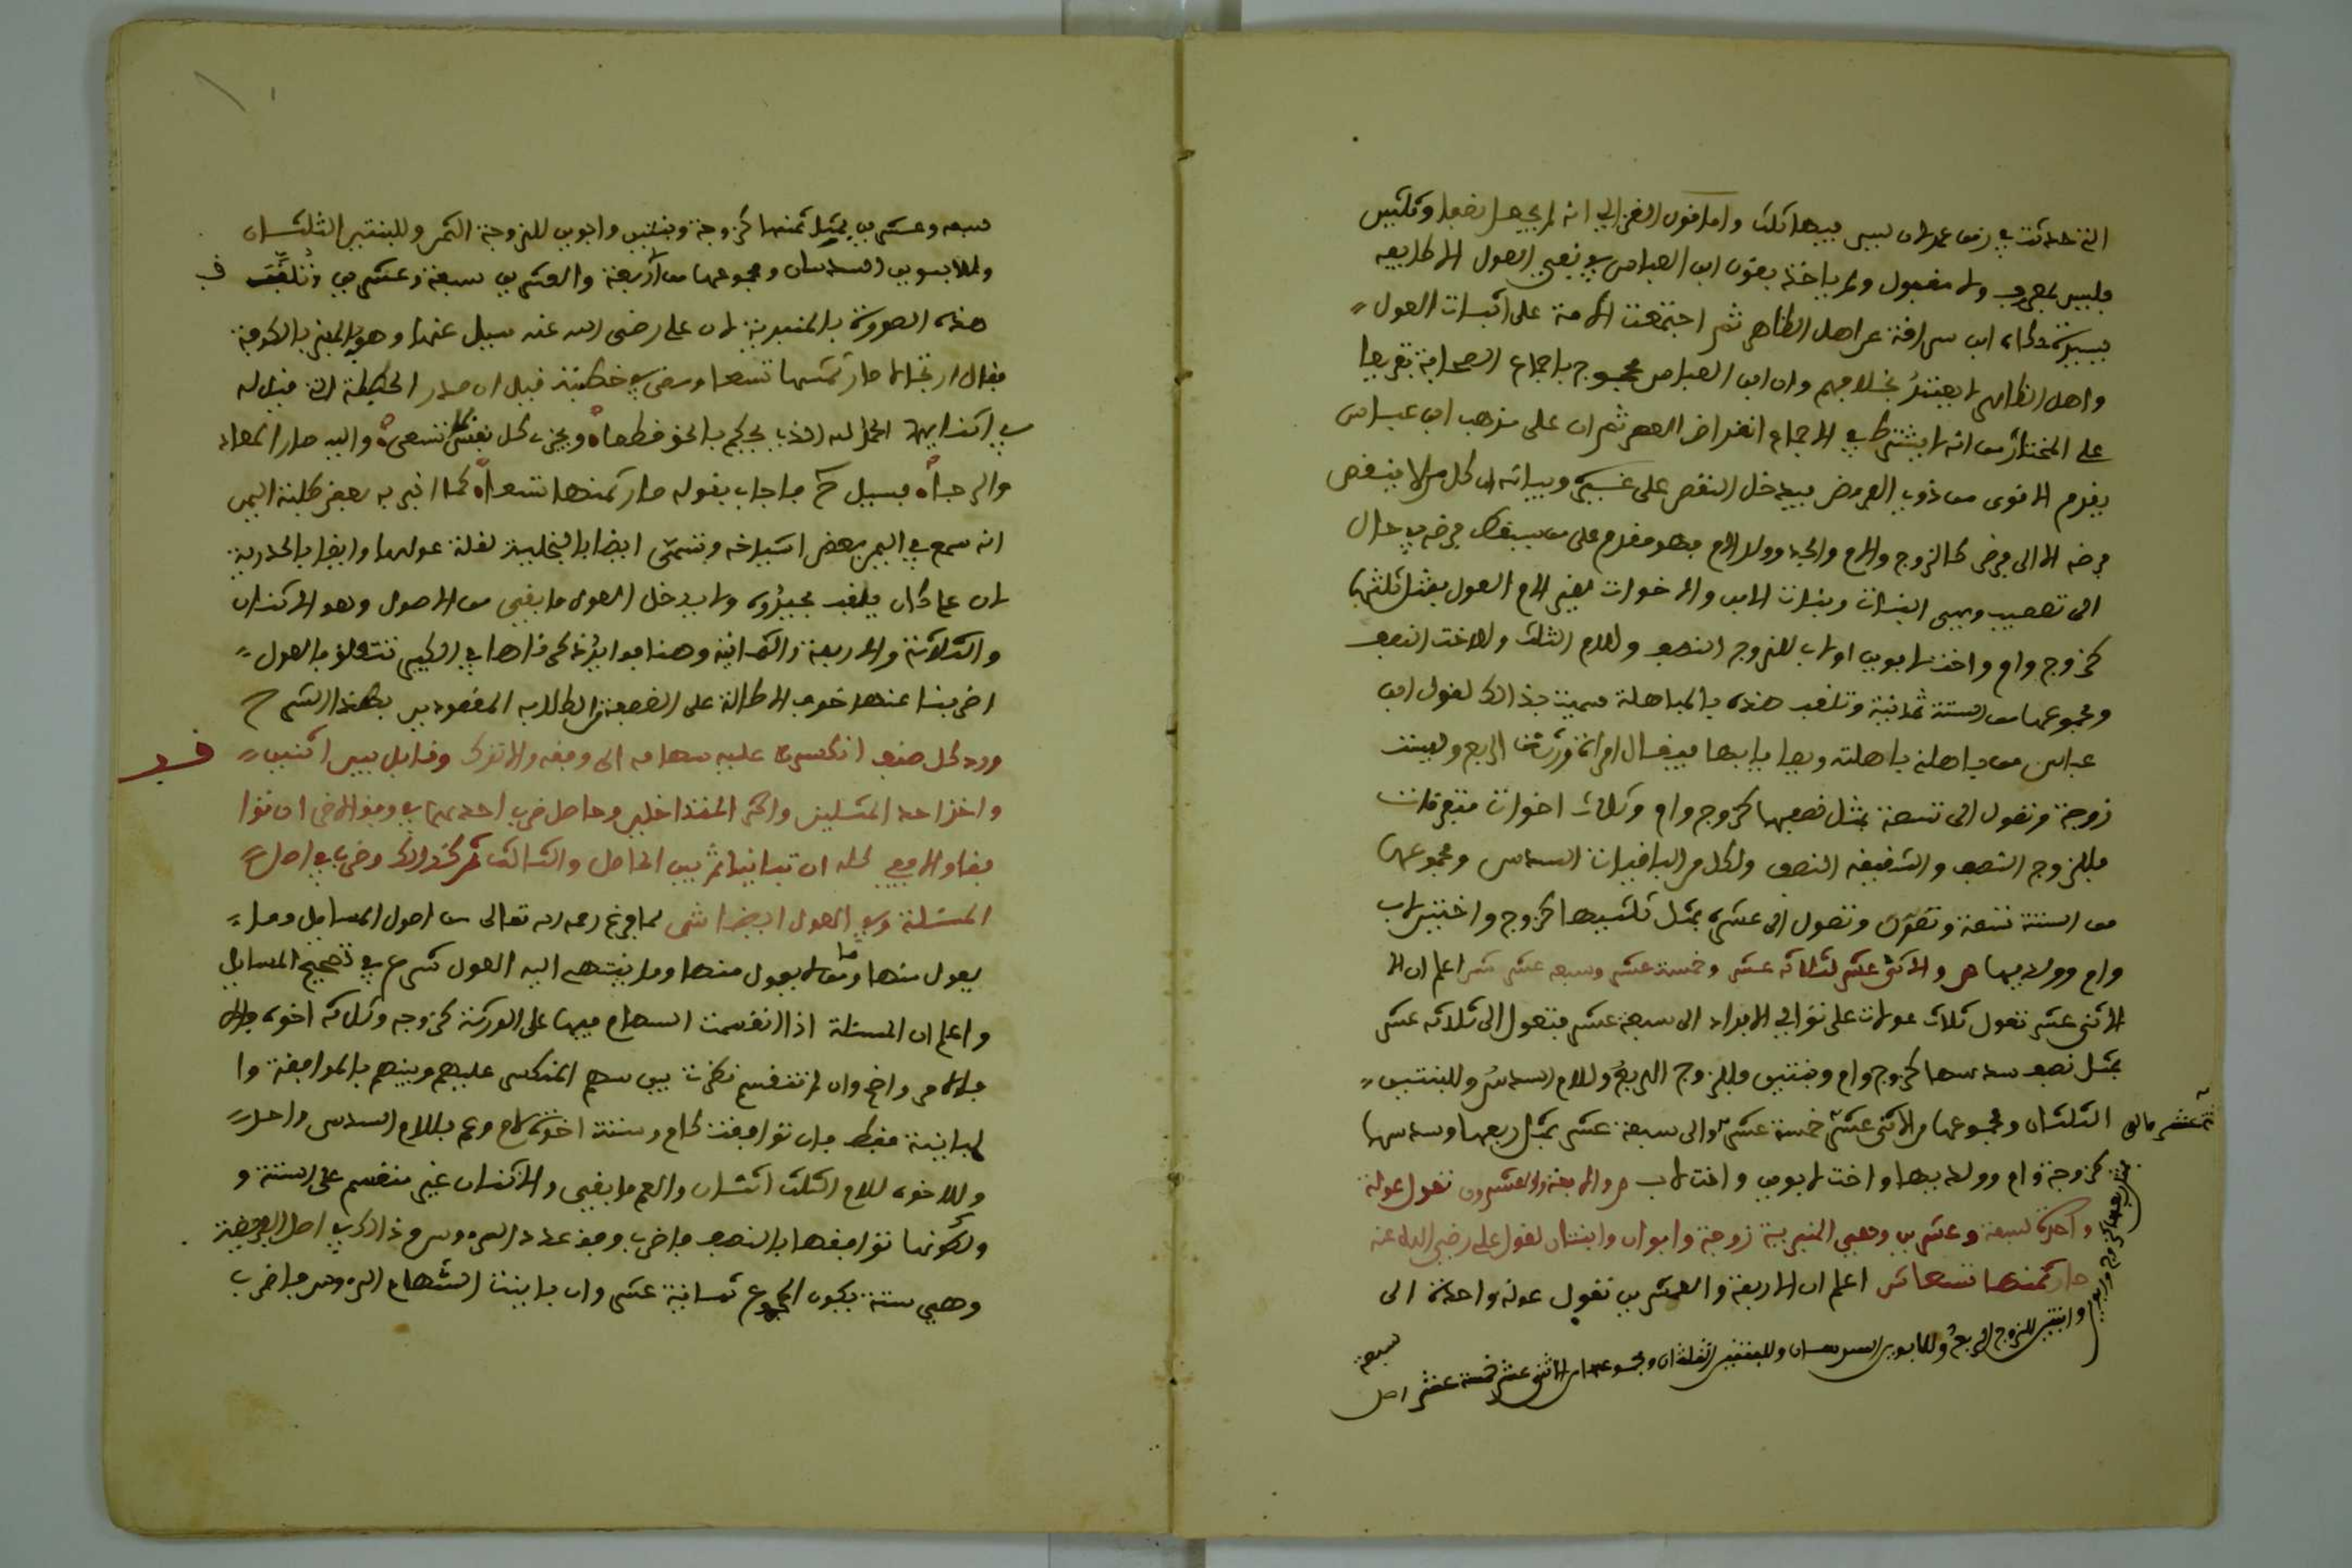 التي حدثت في زمن عمر لان ليس فيها ثلث واما قول الغزالي انه لم يجعل نصفا وثلثين
فليس بمعروف ولا مقبول ولم ياخذ بقول ابن العباس في نفي العول الا طايفه
يسيرة حكاه ابن سراقة عن اهل الظاهر ثم اجتمعت الامة على اثبات العول
واهل الظاهر لا يعتد بخلافهم وان ابن العباس محجوج باجماع الصحابة تفريعا
على المختار من انه لا يشترط في الاجماع انقراض العصر ثم ان على مذهب ابن عباس
يقدم الاقوى من ذوي الفروض فيدخل النقص على غيره وبيانه ان كل من لا ينقص
فرضه الا الى فرض كالزوج والام والجدة وولد الام فهو مقدم على من يسقط فرضه في حال
الى تعصيب وهي البنات وبنات الابن والاخوات لغير الام العول بمثل ثلثها
كزوج وام واخت لابوين او لاب للزوج النصف وللام الثلث وللاخت النصف
ومجموعها من الستة ثمانية وتلقب هذه بالمباهلة سميت بذالك لقول ابن
عباس من باهلني باهلته الربع وليست
زوجة وتعول الى تسعة بمثل نصفها كزوج وام وثلاث اخوات متفرقات
فللزوج النصف والشقيقه النصف ولكل من الباقيات السدس ومجموعها
من الستة تسعة وتعول الى عشرة بمثل ثلثيها كزوج واختين لاب
وام وولديها ص والاثنى عشر لثلاثه عشر وخمسة عشر وسبعه عشر ش اعلم ان الا
الاثنى عشر تعول ثلاث عولات على توالي الافراد الى سبعة عشر فتعول الى ثلاثه عشر
بمثل نصف سدسها كزوج وام وبنتين فللزوج الربع وللام السدس وللبنتين
الثلثان ومجموعها من الاثنى عشر خمسة عشر والى سبعة عشر بمثل ربعها وسدسها
كزوجة وام وولديها واخت لابوين واخت لاب ص والاربعة والعشرون تعول عولة
واحدة لسبعة وعشرين وهي المنبرية زوجة وابوان وابنتان لقول علي رضي الله عنه
صار ثمنها تسعا ش اعلم ان الاربعة والعشرين تعول عولة واحدة الى
ثة عشر والى
بمثل ربعها كزوج وابوين
وابنتين للزوج الربع وللابوين السدسان وللبنتين الثلثان ومجموعها من الاثنى عشر خمسة عشر اصل
سبعة
سبعه وعشرين بمثل ثمنها كزوجة وبنتين وابوين للزوجة الثمن وللبنتين الثلثان
وللابوين السدسان ومجموعها من اربعة والعشرين سبعة وعشرين وتلقب
هذه الصورة بالمنبرية لان علي رضي الله عنه سيل عنها وهو على المنبر بالكوفة
فقال ارتجالا صار ثمنها تسعا ومضى في خطبته قيل ان صدر الخطبة التي قيل له
في اثنايها الحمد لله الذي يحكم بالحق قطعا ويجزي كل نفس بما تسعى واليه صار المعاد
والرجعا فسيل ح فاجاب بقوله صار ثمنها تسعا كما اخبر به بعض طلبة اليمن
انه سمع في اليمن بعض اشياخه وتسمى ايضا بالبخيلية لقلة عولها وايضا بالحيدرية
لان عليا كان يلقب بحيدره ولا يدخل العول ما بقي من الاصول وهو الاثنان
والثلاثة والاربعة والثمانية وهنا فوايد ذكرناها في الكبير تتعلق بالعول
اضربنا عنها خوف الاطالة على الطلابه المقصودين بهذا الشرح
ورد كل صنف انكسرت عليه سهامه الى وفقه والاترك وقابل بين اثنين
واخذ احد المثلين واكثر المتداخلين وحاصل ضرب احدهما في وفق الاخر ان توا
فقا والا ففي كله ان تباينا ثم بين الحاصل والثالث ثم كذالك وضرب في اصل
المسئلة وفي العول ايضا ش لما فرغ رحمه الله تعالى من اصول المسايل وما
يعول منها وما لا يعول منها وما ينتهي اليه العول شرع في تصحيح المسايل
واعلم ان المسئلة اذا انقسمت السهام فيها على الورثة كزوجه وثلاثه اخوة
فالامر واضح وان لم تنقسم نظرت بين سهم المنكسر عليهم وبينهم بالموافقة وا
لمباينة فقط فان توافقت كام وستة اخوة لام وعم فللام السدس واحد
وللاخوة للام الثلث اثنان والعم ما بقي والاثنان غير منقسم على الستة و
ولكونها توافقها بالنصف فاضرب وفق عدد الرءوس وذالك في اصل الفريضة
وهي ستة يكون المجموع ثمانية عشر وان باينت السهام الرءوس فاضرب